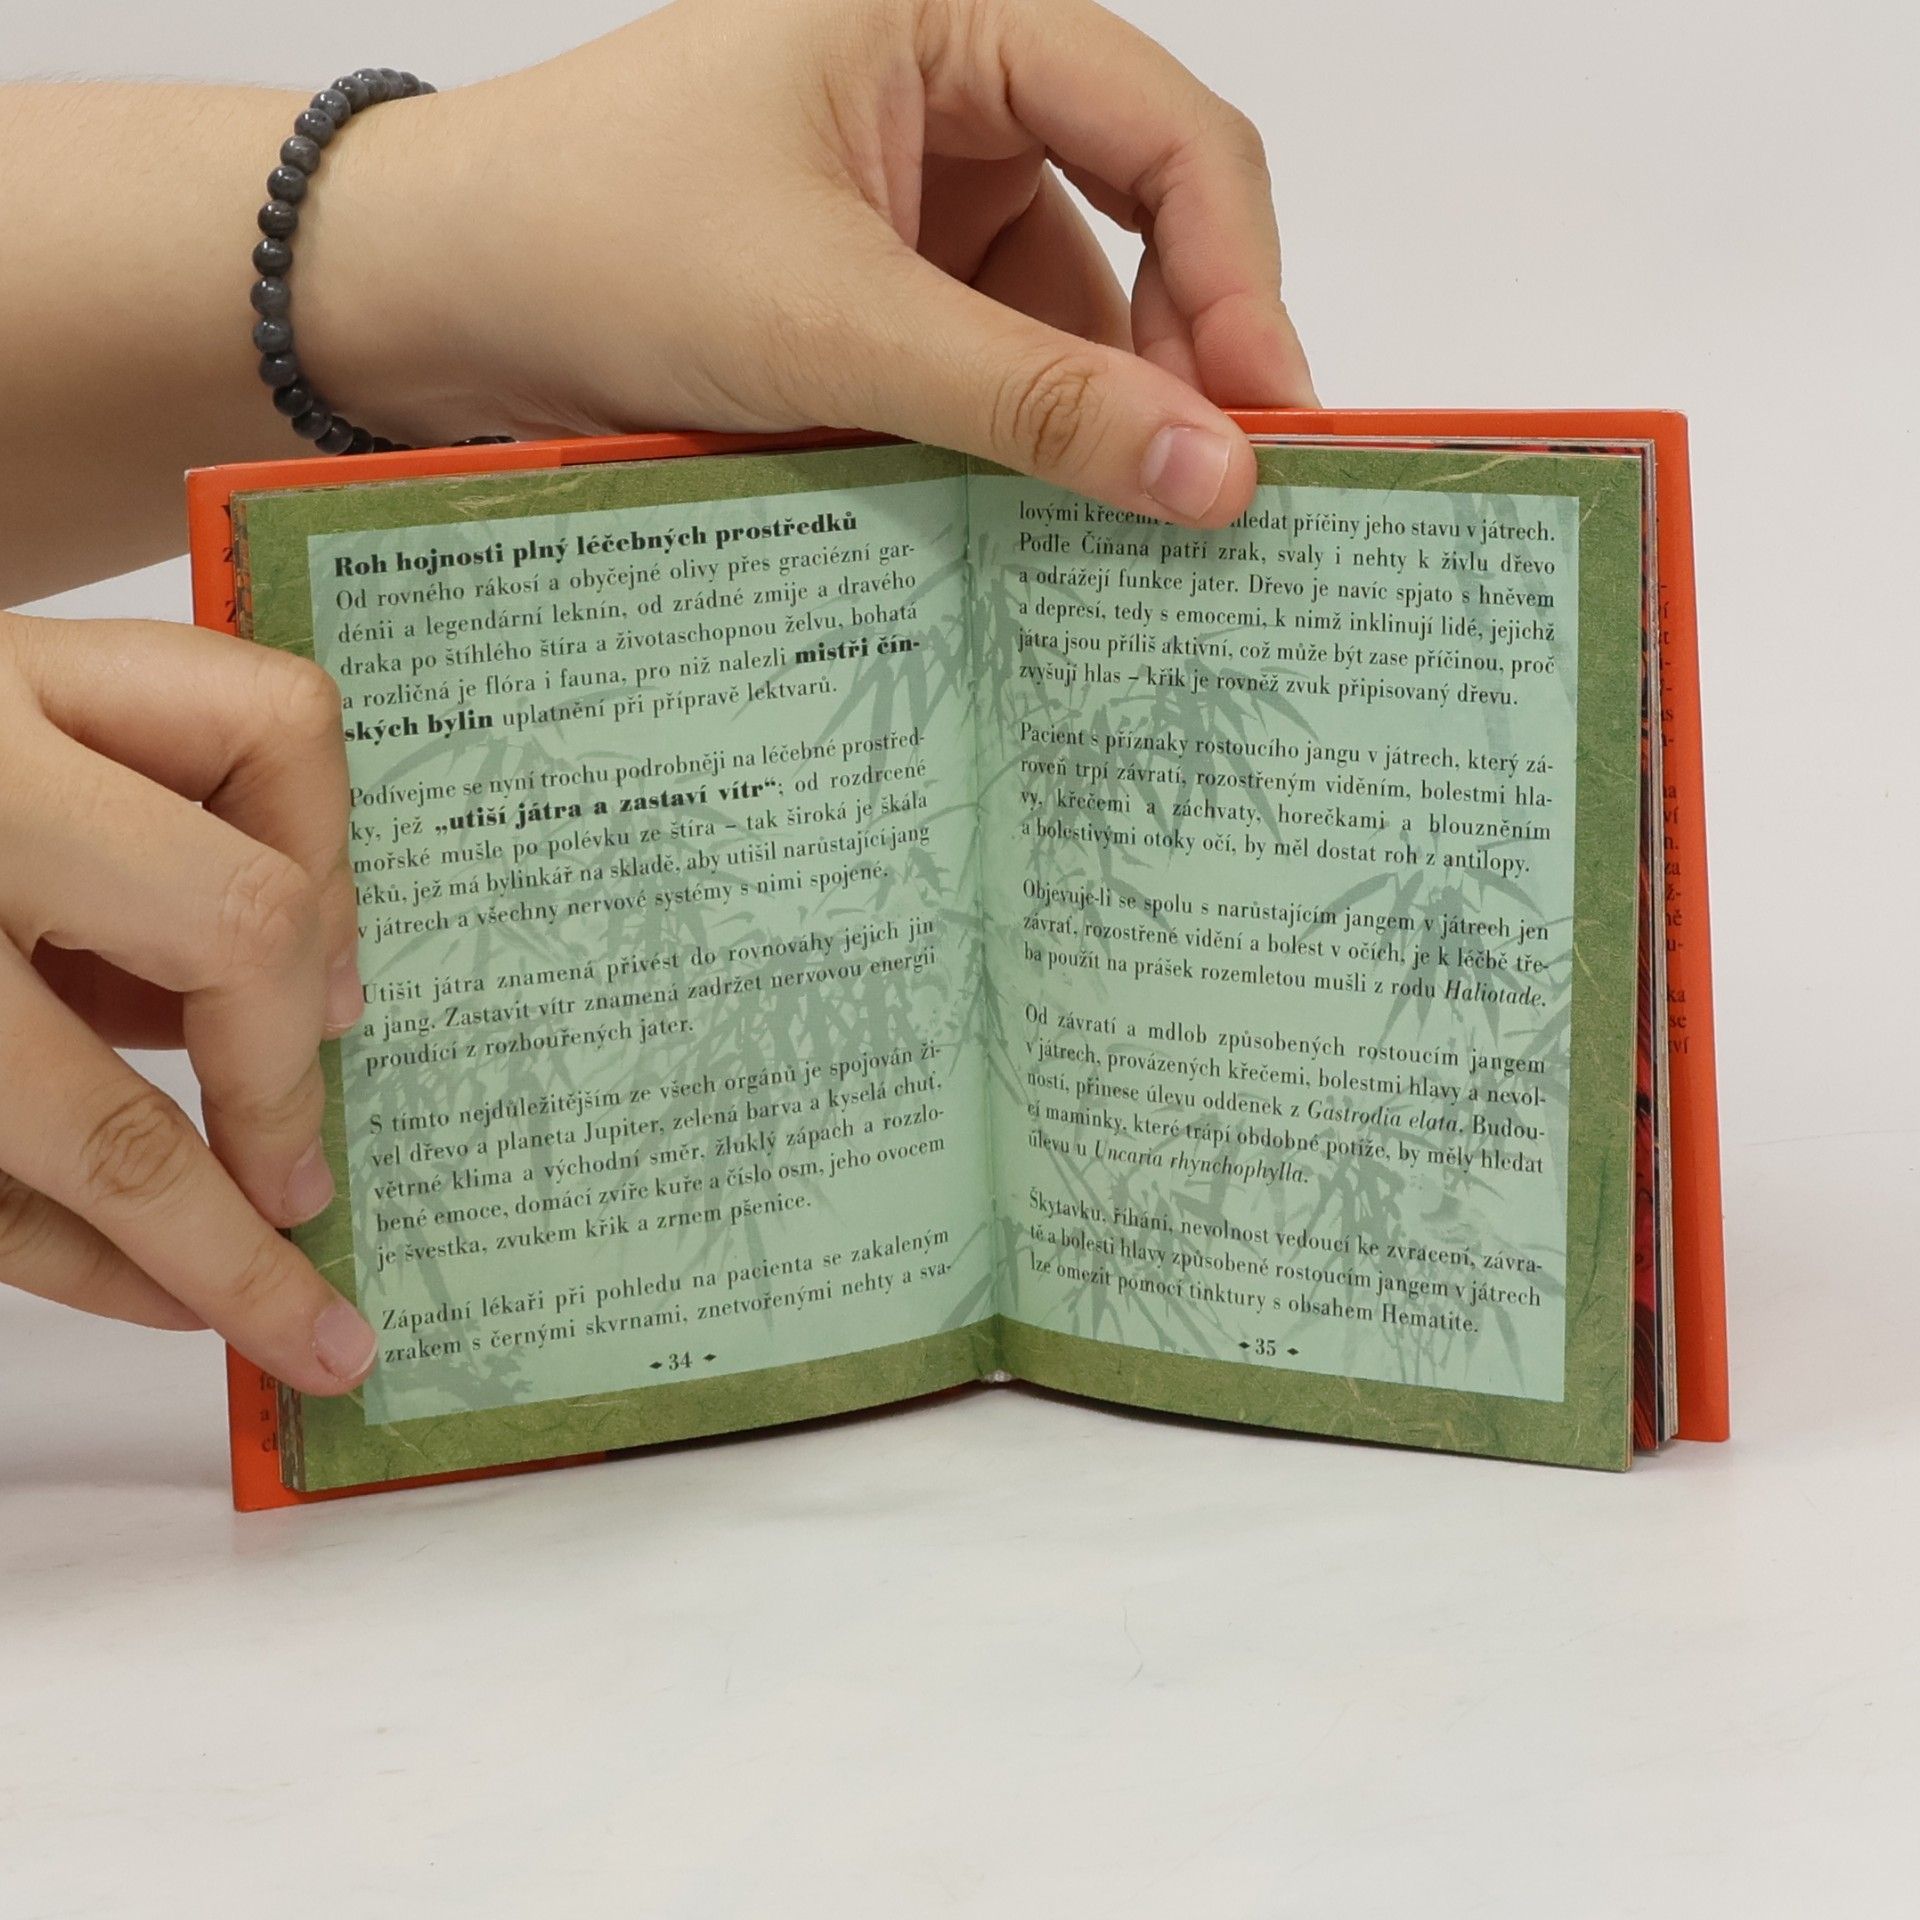 Roh hojnosti plný léčebných prostředků
Od rovného rákosí a obyčejné olivy přes graciézní gar-
dénii a legendární leknín, od zrádné zmije a dravého
draka po štíhlého štíra a životaschopnou želvu, bohatá
a rozličná je flóra i fauna, pro niž nalezli mistři čín-
ských bylin uplatnění při přípravě lektvarů.
Podívejme se nyní trochu podrobněji na léčebné prostřed-
ky, jež „utiší játra a zastaví vítr“; od rozdrcené
mořské mušle po polévku ze štíra – tak široká je škála
léků, jež má bylinkář na skladě, aby utišil narůstající jang
v játrech a všechny nervové systémy s nimi spojené.
Utišit játra znamená přivést do rovnováhy jejich jin
a jang. Zastavit vítr znamená zadržet nervovou energii
proudící z rozbouřených jater.
S tímto nejdůležitějším ze všech orgánů je spojován ži-
vel dřevo a planeta Jupiter, zelená barva a kyselá chuť,
větrné klima a východní směr, žluklý zápach a rozzlo-
bené emoce, domácí zvíře kuře a číslo osm, jeho ovocem
je švestka, zvukem křik a zrnem pšenice.
Západní lékaři při pohledu na pacienta se zakaleným
zrakem s černými skvrnami, znetvořenými nehty a sva-
34
lovými křečemi hledat příčiny jeho stavu v játrech.
Podle Číňanů patří zrak, svaly i nehty k živlu dřevo
a odrážejí funkce jater. Dřevo je navíc spjato s hněvem
a depresí, tedy s emocemi, k nimž inklinují lidé, jejichž
játra jsou příliš aktivní, což může být zase příčinou, proč
zvyšují hlas – křik je rovněž zvuk připisovaný dřevu.
Pacient s příznaky rostoucího jangu v játrech, který zá-
roveň trpí závratí, rozostřeným viděním, bolestmi hla-
vy, křečemi a záchvaty, horečkami a blouzněním
a bolestivými otoky očí, by měl dostat roh z antilopy.
Objevuje-li se spolu s narůstajícím jangem v játrech jen
závrať, rozostřené vidění a bolest v očích, je k léčbě tře-
ba použít na prášek rozemletou mušli z rodu Haliotade.
Od závratí a mdlob způsobených rostoucím jangem
v játrech, provázených křečemi, bolestmi hlavy a nevol-
ností, přinese úlevu oddenek z Gastrodia elata. Budou-
cí maminky, které trápí obdobné potíže, by měly hledat
úlevu u Uncaria rhynchophylla.
Škytavku, říhání, nevolnost vedoucí ke zvracení, závra-
tě a bolesti hlavy způsobené rostoucím jangem v játrech
lze omezit pomocí tinktury s obsahem Hematite.
35